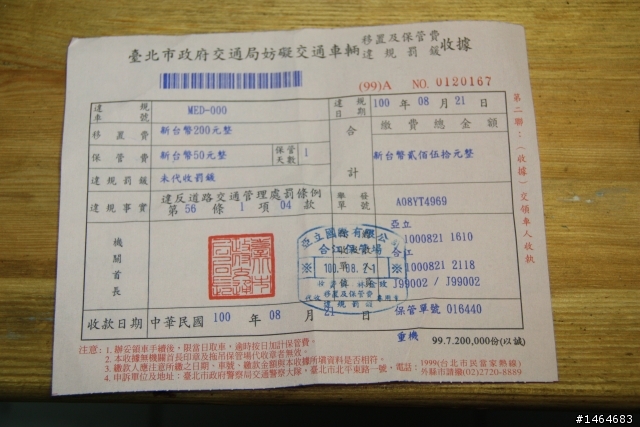 臺北市政府交通局妨礙交通車輛 移置及保管費 違規罰鍰 收據
(99)A NO. 0120167
違規車號 MED-000 違規日期 100 年 08 月 21 日
移置費 新台幣200元整 合計 繳費總金額
保管費 新台幣50元整 保管天數 1 新台幣貳佰伍拾元整
違規罰鍰 未代收罰鍰
違規事實 違反道路交通管理處罰條例 第 56 條 1 項 04 款 舉發單號 A08YT4969
機關首長
亞立國際有限公
合江保管場
100.08.21
移置及保管費
亞立
1000821 1610
合江
1000821 2118
J99002 / J99002
收款日期 中華民國 100 年 08 月 21 日 保管單號 016440
重機 99.7.200,000份(以誠)
第二聯：(收據)交領車人收執
注意：1. 辦妥領車手續後，限當日取車，逾時按日加計保管費。
2. 本收據無機關首長印章及拖吊保管場代收章者無效。
3. 繳款人應注意所繳之日期、車號、繳款金額與本收據所填資料是否相符。
4. 申訴單位及地址：臺北市政府警察局交通警察大隊，臺北市北平東路一號，電話：1999(台北市民當家熱線) 外縣市請撥(02)2720-8889
#1464683